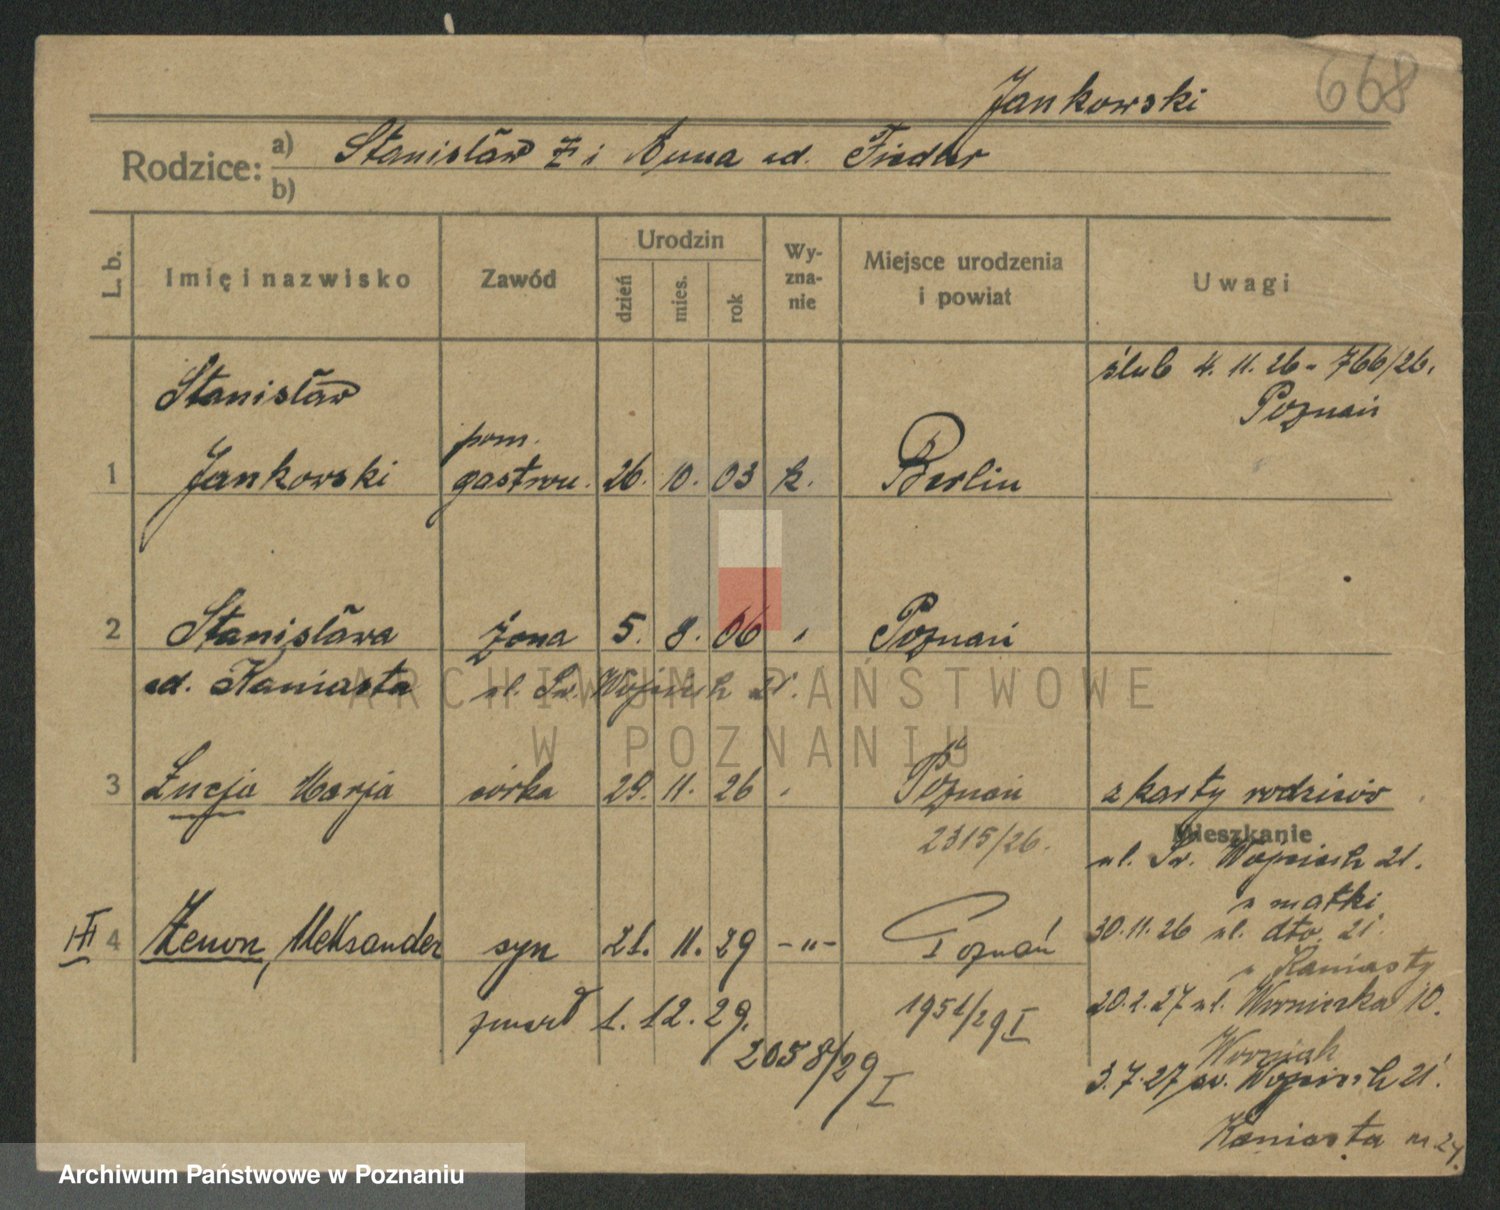 668
Jankowski
Rodzice: a) Stanisław ż i Anna ud. Fiedler
b)
L. b.
Imię i nazwisko
Zawód
Urodzin
dzień
mies.
rok
Wy-
zna-
nie
Miejsce urodzenia
i powiat
Uwagi
ślub 4. 11. 26 - 766/26.
Poznań
Stanisław
1 Jankowski pom. gastron. 26. 10. 03 k. Berlin
2 Stanisława żona 5. 8. 06 " Poznań
ud. Kaniasta ul. Św. Wojciech 21.
3 Łucja Marja córka 29. 11. 26 " Poznań z karty rodziców
2315/26.
Mieszkanie
ul. Św. Wojciech 21.
u matki
III 4 Zenon, Aleksander syn 21. 11. 29 -"- Poznań
30.11.26 ul. dto. 21.
u Kaniasty
zmarł 1. 12. 29.
2058/29 I
1951/29 I
20.2.27 ul. 10.
Woźniak
3.7.27 św. Wojciech 21.
Kaniasta
ARCHIWUM PAŃSTWOWE
W POZNANIU
Archiwum Państwowe w Poznaniu